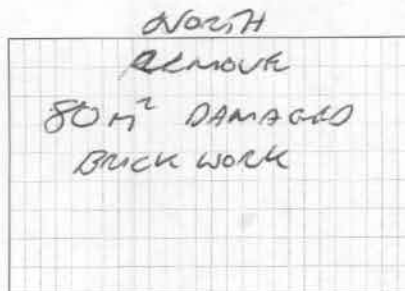 NORTH
REMOVE
80 M² DAMAGED
BRICK WORK